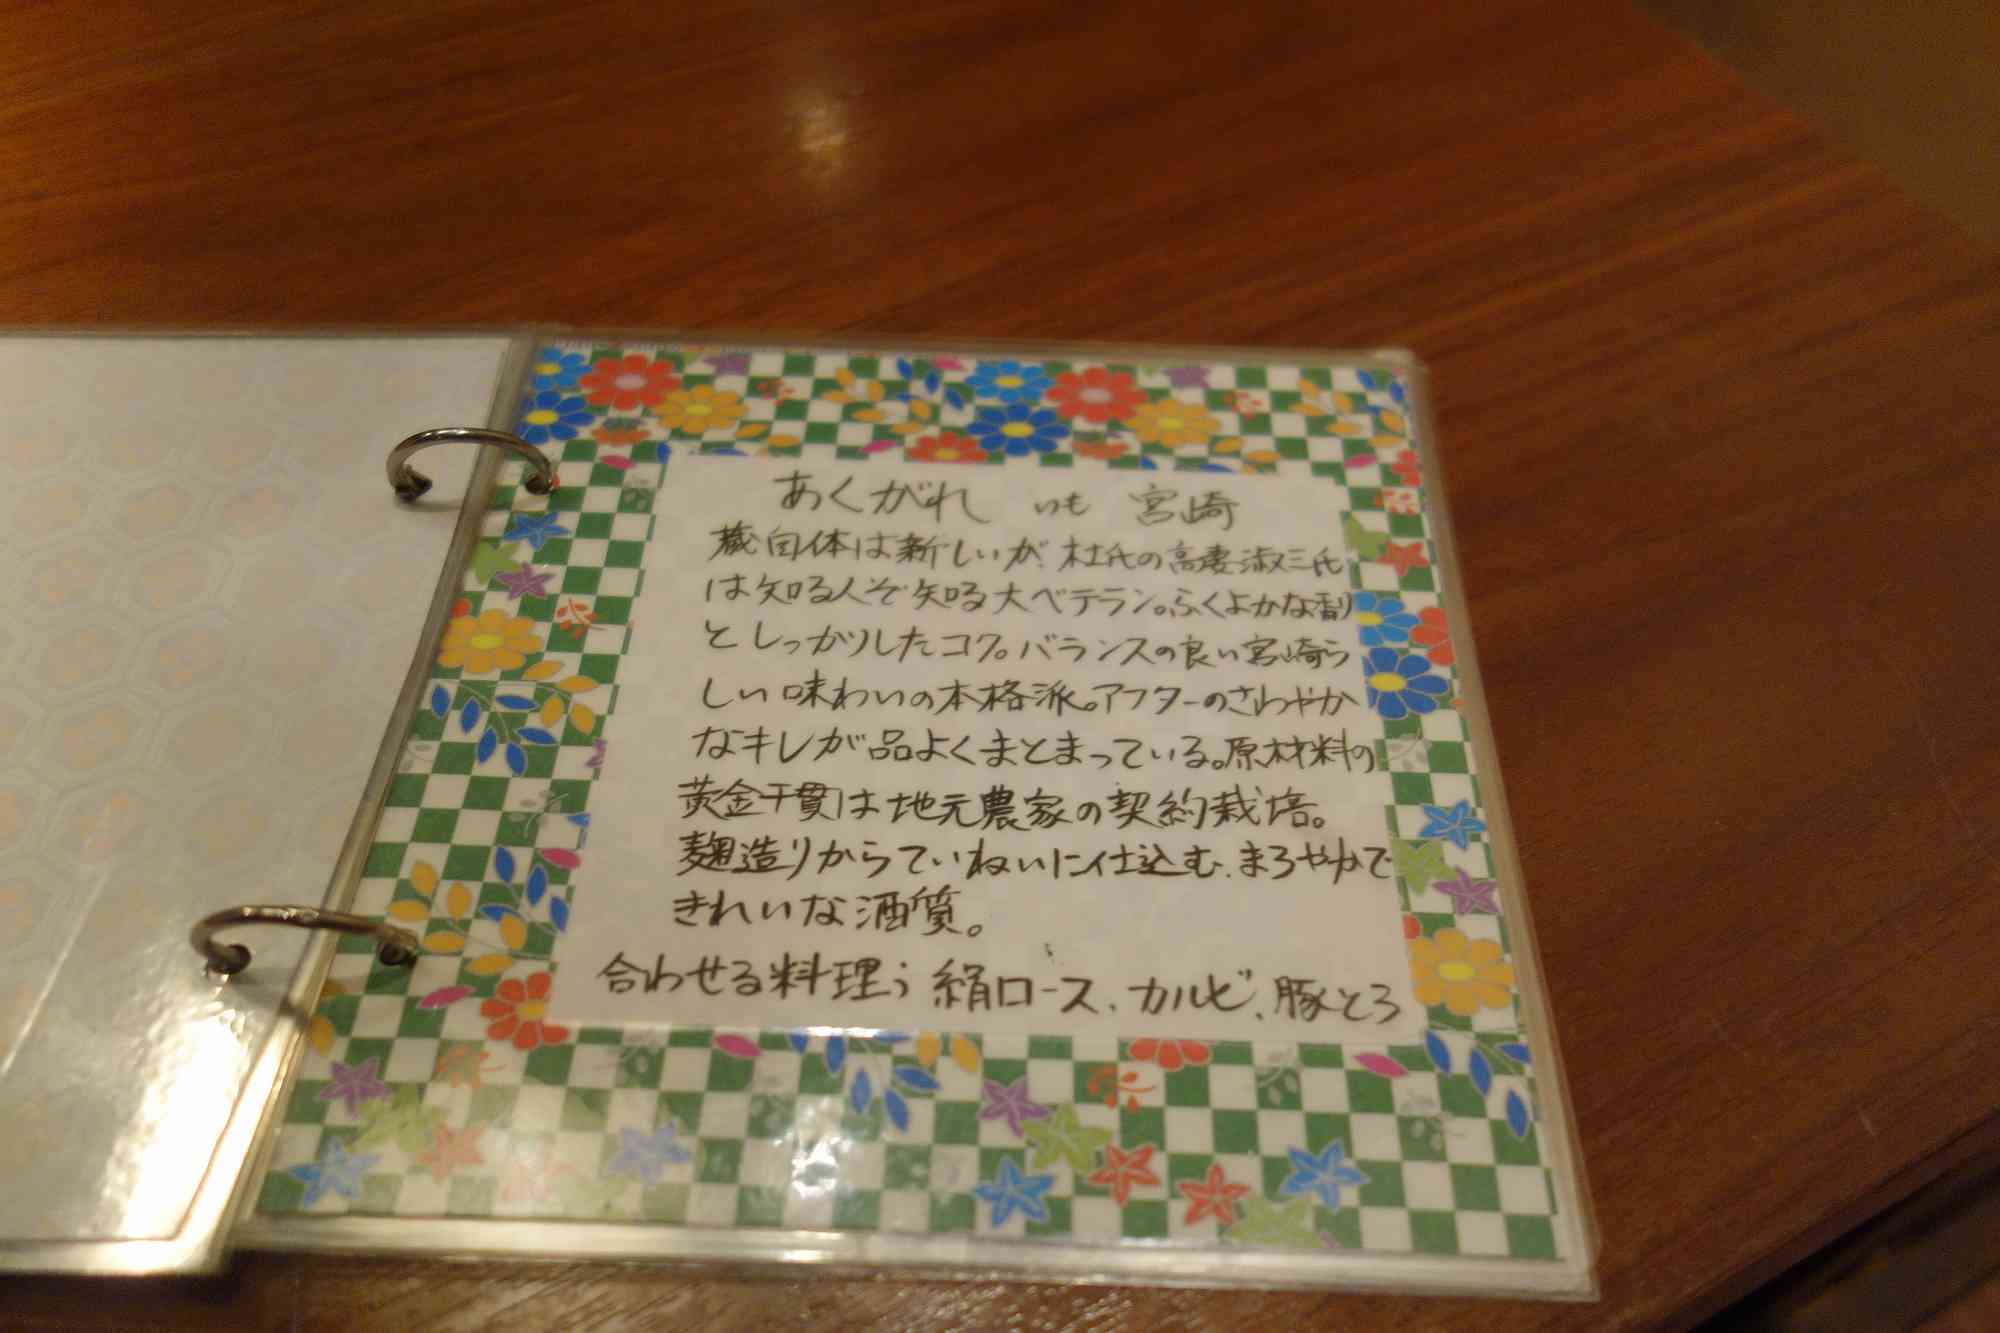 あくがれ いも 宮崎
蔵自体は新しいが、杜氏の高妻淑三氏
は知る人ぞ知る大ベテラン。ふくよかな香り
としっかりしたコク。バランスの良い宮崎ら
しい味わいの本格派。アフターのさわやか
なキレが品よくまとまっている。原材料の
黄金千貫は地元農家の契約栽培。
麹造りからていねいに仕込む、まろやかで
きれいな酒質。
合わせる料理; 絹ロース、カルビ、豚とろ